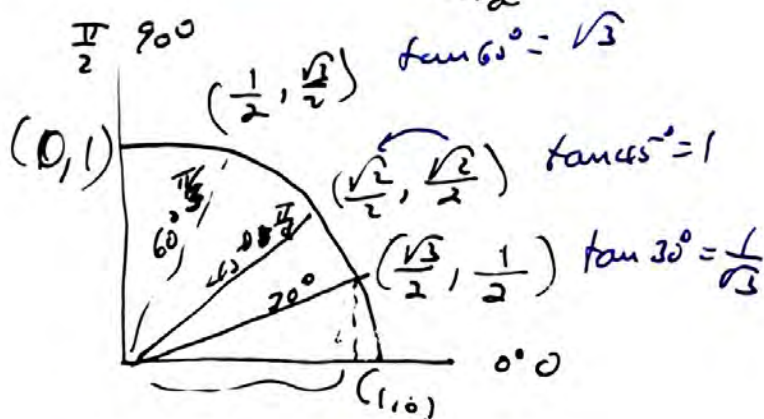 2
π/2 90°
tan 60° = √3
(1/2, √3/2)
(0,1)
(√2/2, √2/2) tan 45° = 1
60° π/3
π/4
(√3/2, 1/2) tan 30° = 1/√3
30°
0° 0
(1,0)